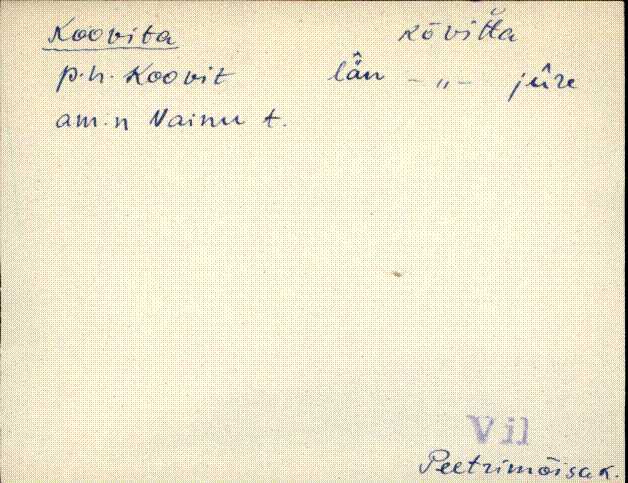 Koovita kōvi͔t̆ta
p.n. Koovit lân̈ - „ - jûre
am.n Vainu t.
Vil
Peetrimõisa k.